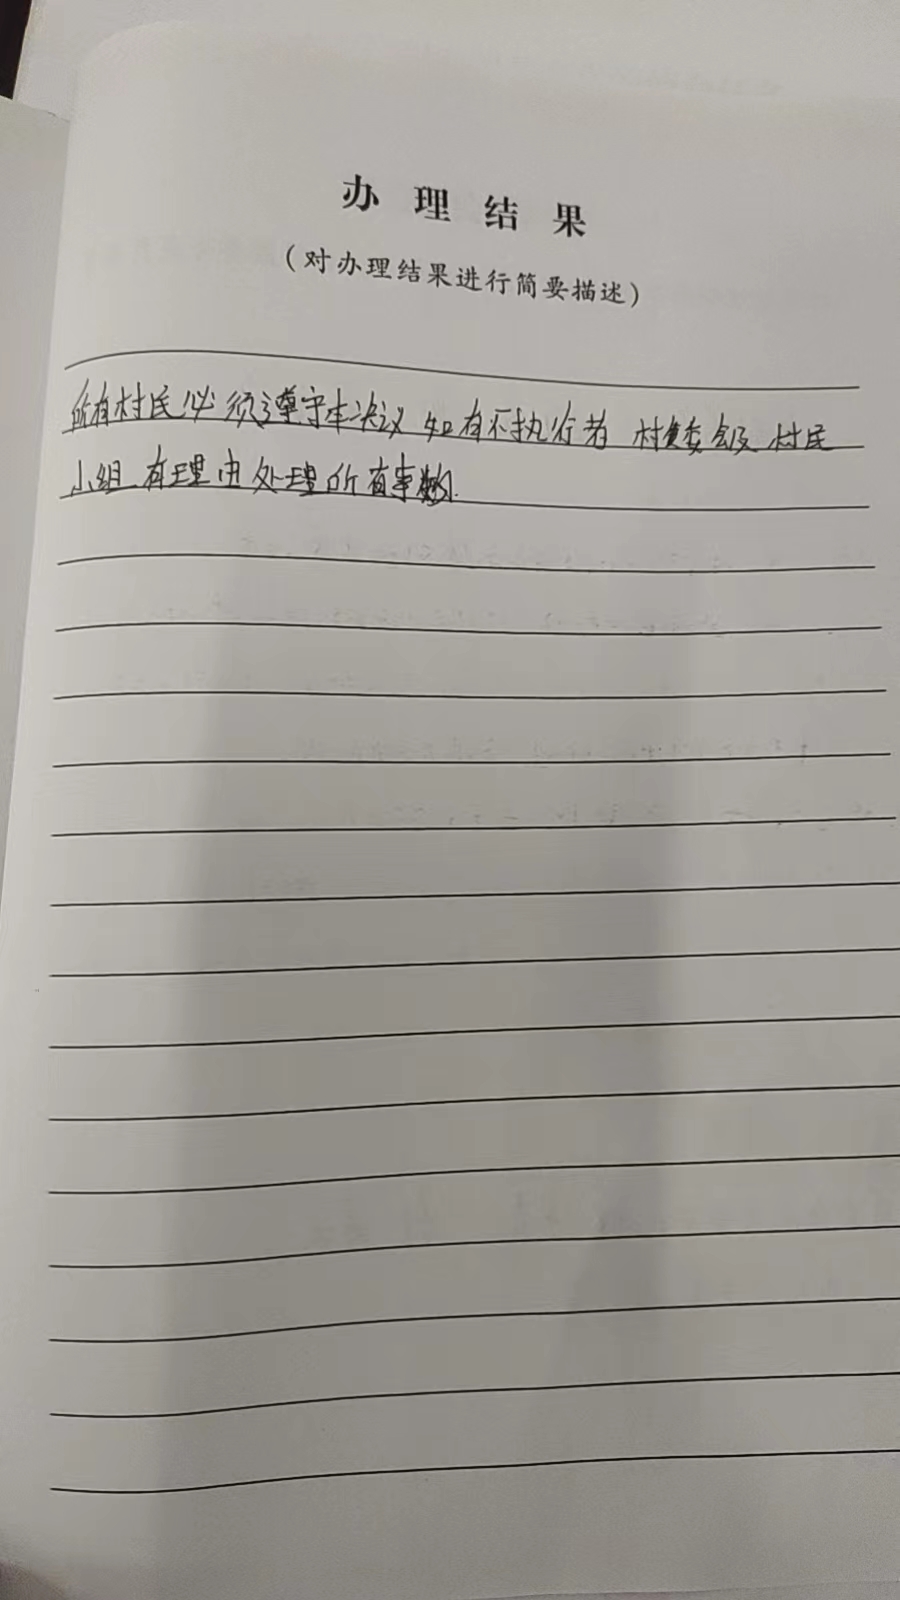 办理结果
（对办理结果进行简要描述）
所有村民必须遵守本决议 如有不执行者 村委会及 村民
小组有理由处理所有事